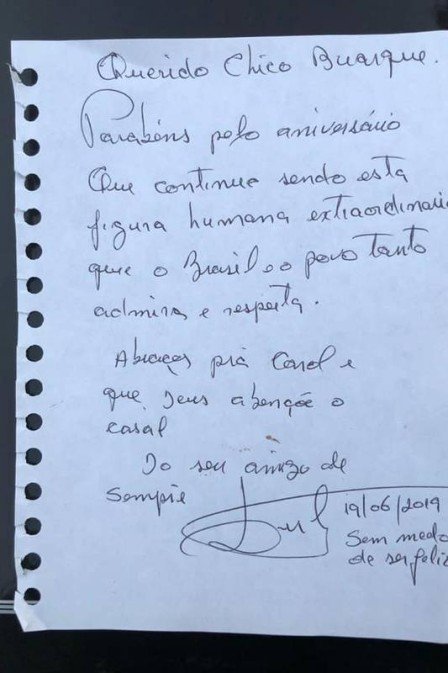 Querido Chico Buarque.
Parabéns pelo aniversário
Que continue sendo esta
figura humana extraordinaria
que o Brasil e o povo tanto
admira e respeita.
Abraços prá Carol e
que Deus abençõe o
casal
Do seu amigo de
sempre
Lul
19/06/2019
Sem medo
de ser feliz